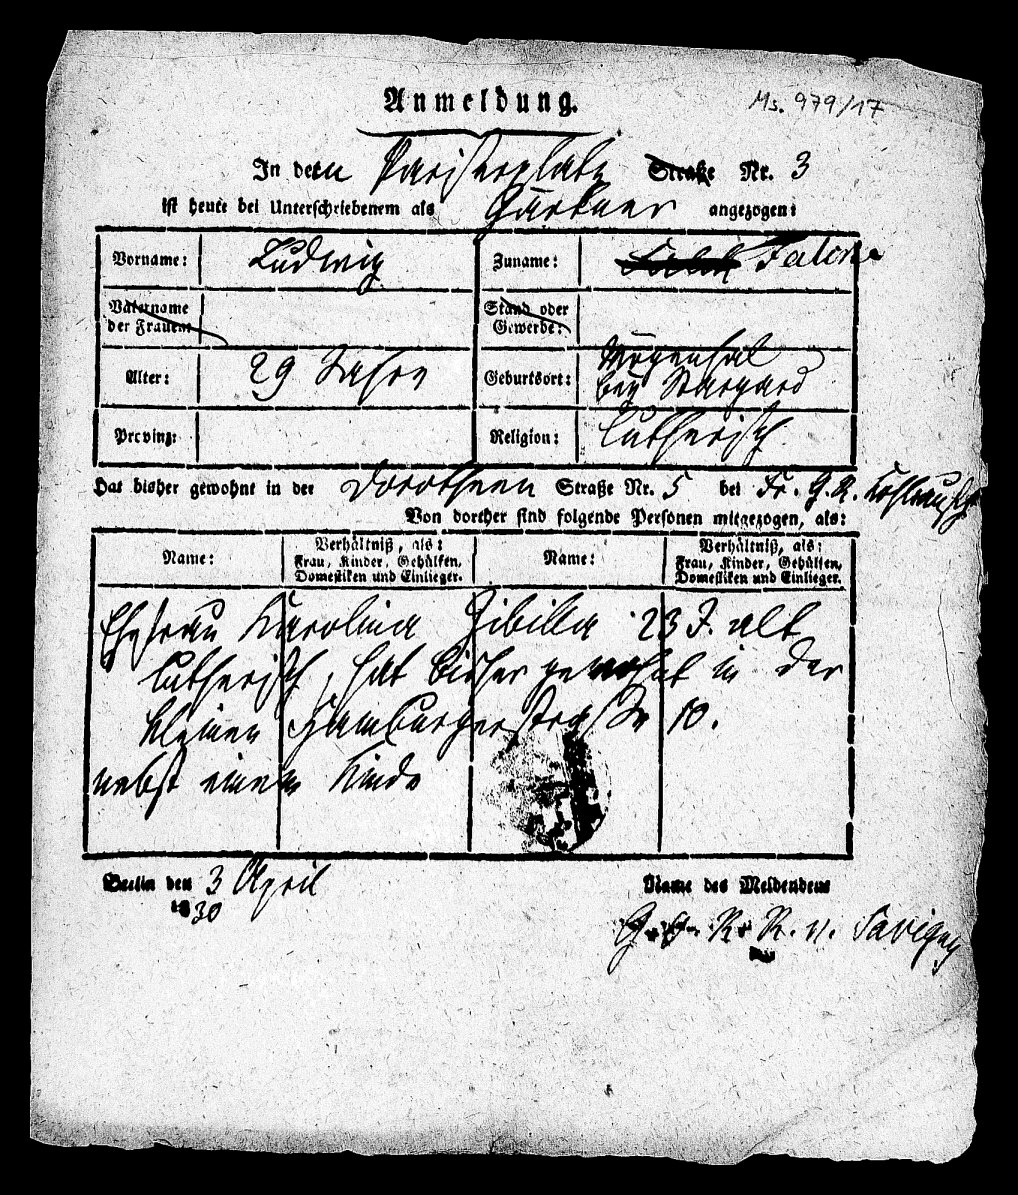 Anmeldung.
Ms. 979/17
In dem Pariserplatz Straße Nr. 3
ist heute bei Unterschriebenem als Gärtner angezogen:
Vorname: Ludwig Zuname: Falck
Vatersname der Frauen: Stand oder Gewerbe:
Alter: 29 Jahre Geburtsort: bey Stargard
Provinz: Religion: lutherisch
Hat bisher gewohnt in der Dorotheen Straße Nr. 5 bei Fr. G. R.
Von dorther sind folgende Personen mitgezogen, als:
Name: Verhältniß, als: Frau, Kinder, Gehülfen, Domestiken und Einlieger. Name: Verhältniß, als: Frau, Kinder, Gehülfen, Domestiken und Einlieger.
Ehefrau Karolina Sibilla 23 J. alt
lutherisch, hat bisher gewohnt in der
kleinen Hamburgerstraße 10.
nebst einem Kinde
Berlin den 3 April
1830
Name des Meldenden
G. J. R. R. v. Savigny